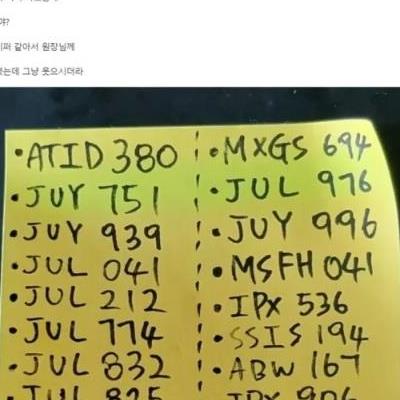 야?
원장님께
그냥 웃으시더라
• ATID 380
• JUY 751
• JUY 939
• JUL 041
• JUL 212
• JUL 774
• JUL 832
• JUL 825
• MXGS 694
• JUL 976
• JUY 996
• MSFH 041
• IPX 536
• SSIS 194
• ABW 167